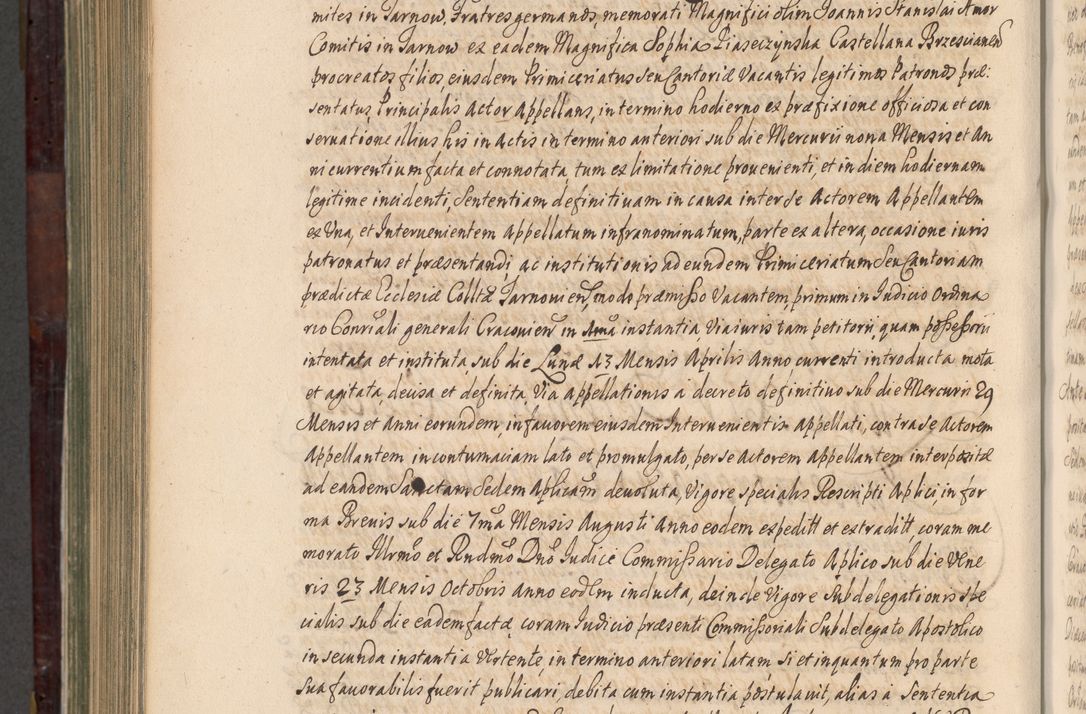 mites in Tarnow, Fratres germanos, memorati Magnifici olim Joannis Stanislai Amor
Comitis in Tarnow ex eadem Magnifica Sophia Piaseczynska Castellana Brzescianen
procreatos filios, eiusdem Primiceriatus seu Cantoriæ Vacantis legitimos Patronos præ:
sentatus, Principalis Actor Appellans, in termino hodierno ex præfixione officiosa et con
seruatione illius his in actis in termino anteriori sub die Mercurii nona Mensis et An
ni currentium facta et connotata, tum ex limitatione prouenienti, et in diem hodiernam
legitime incidenti, Sententiam definitiuam in causa inter se Actorem Appellantem
ex Vna, et Interuenientem Appellatum infranominatum, parte ex altera, occasione iuris
patronatus et præsentandi, ac institutionis ad eundem Primiceriatum Seu Cantoriam
prædictæ Ecclesiæ Colltæ Tarnouien, modo præmisso Vacantem, primum in Iudicio Ordina
rio Consriali generali Cracouien in Ama instantia, Via iuris tam petitorii, quam possessorii
intentata et instituta, sub die Lunæ 13 Mensis Aprilis Anno currenti introducta mota
et agitata, decisa et definita, Via appellationis a decreto definitiuo sub die Mercurii 29
Mensis et Anni eorundem, in fauorem eiusdem Interuenientis appellati, contra se Actorem
Appellantem in contumaciam lato et promulgato, per se actorem appellantem interpositæ
ad eandem Sanctam Sedem Aplicam deuoluta, Vigore specialis Rescripti Aplici, in for
ma Breuis sub die 7ma Mensis Augusti Anno eodem expeditt et extraditt, coram me
morato Illrmo et Rndmo Dno Iudice Commissario Delegato Aplico sub die Vene
ris 23 Mensis Octobris anno eodem inducta, deinde Vigore Subdelegationis spe
cialis sub die eadem factæ, coram Iudicio præsenti Commissoriali Subdelegato Apostolico
in secunda instantia Vertente, in termino anteriori latam, si et inquantum pro parte
sua fauorabilis fuerit publicari, debita cum instantia postulauit, alias a Sententia